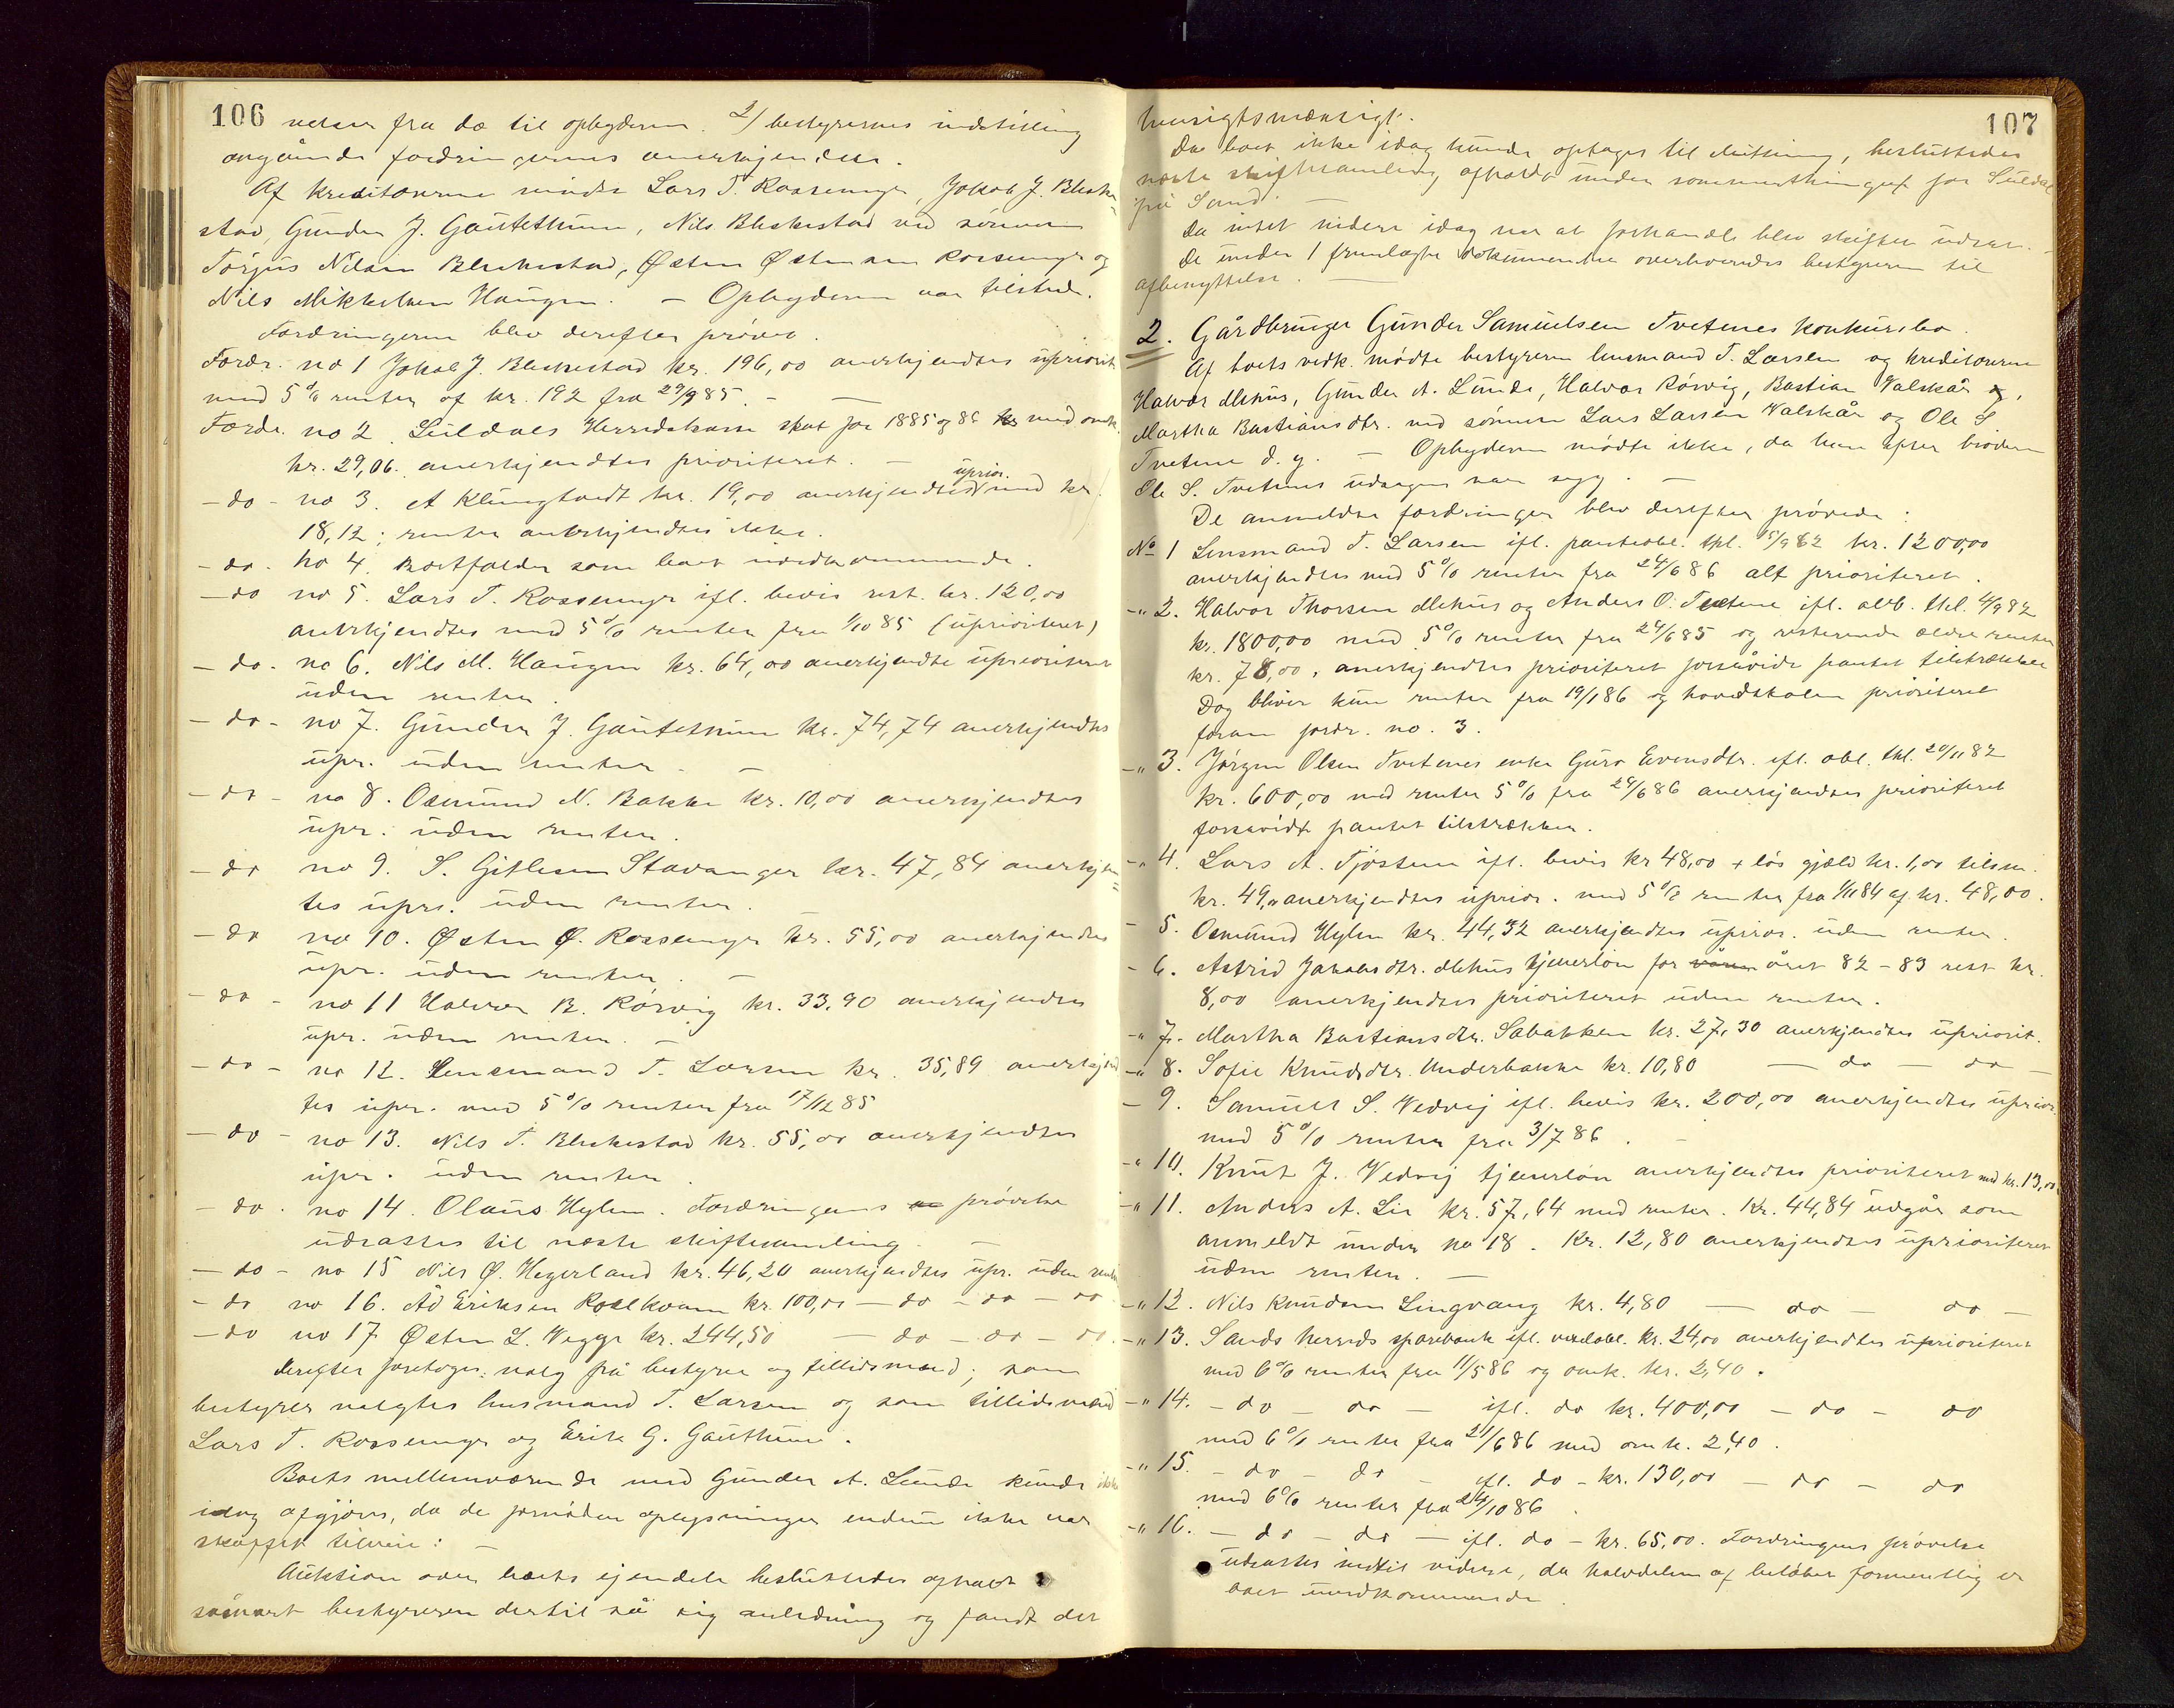 106
velser fra do til opbyderen. 2/ bestyrernes indstilling
angående fordringernes anerkjendelse.
Af kreditorerne mødte Lars T. Rossemyr, Jakob J. Bleske-
stad, Gunder J. Gautethun, Nils Bleskestad ved sønnen
Torjus Nilsen Bleskestad, Østen Østensen Rossemyr og
Nils Mikkelsen Haugen. — Opbyderen var tilstede.
Fordringerne blev derefter prøvet.
Fordr. no 1 Jakob J. Bleskestad kr. 196,00 anerkjendtes upriorit.
med 5% renter af kr. 192 fra 29/9 85. — —
Fordr. no 2. Suldals Herredskasse skat for 1885 og 86 kr med omk.
kr. 29,06. anerkjendtes prioriteret. —
— do - no 3. A Klungtvedt kr. 19,00 anerkjendtes uprior. med kr.
18,12; renter anerkjendtes ikke.
— do - no 4. Bortfalder som boet uvedkommende.
— do no 5. Lars T. Rossemyr ifl. bevis rest. kr. 120,00
anerkjendtes med 5% renter fra 1/10 85 (uprioriteret)
— do - no 6. Nils M. Haugen kr. 64,00 anerkjendte uprioriteret
uden renter.
— do - no 7. Gunder J. Gautethun kr. 74,74 anerkjendtes
upr. uden renter. —
— do - no 8. Osmund N. Bakke kr. 10,00 anerkjendtes
upr. uden renter.
— do no 9. S. Gitlesen Stavanger kr. 47,84 anerkjen=
tes upr. uden renter.
— do no 10. Østen Ø. Rossemyr kr. 55,00 anerkjendtes
upr. uden renter. —
— do - no 11 Halvor B. Rørvig kr. 33,90 anerkjendtes
upr. uden renter. —
— do - no 12. Lensmand T. Larsen kr. 35,89 anerkjend
tes upr. med 5% renter fra 17/12 85
— do - no 13. Nils T. Bleskestad kr. 55,00 anerkjendtes
upr. uden renter.
— do - no 14. Olaus Hylen. Fordringens prøvelse
udsættes til næste skiftesamling. —
— do - no 15 Nils Ø. Hegerland kr. 46,20 anerkjendtes upr. uden renter
— do no 16. Åd Eriksen Roalkvam kr. 100,00 — do — do — do
— do no 17 Østen L. Veggje kr. 244,50 — do — do — do.
derefter foretoges valg på bestyrer og tillidsmænd; som
bestyrer valgtes lensmand T. Larsen og som tillidsmænd
Lars T. Rossemyr og Erik G. Gautethun.
Boets mellemværende med Gunder A. Lunde kunde ikke
idag afgjøres, da de fornødne oplysninger endnu ikke var
skaffet tilveie: —
Auktion over boets eiendele besluttedes afholdt
såsnart bestyreren dertil så sig anledning og fandt det
107
hensigtsmæssigt.
Da boet ikke idag kunde optages til slutning, besluttedes
næste skiftesamling afholdt under sommerthinget for Suldal
på Sand. —
Da intet videre idag var at forhandle blev skiftet udsat. —
De under 1 fremlagte dokumenter overleveredes bestyreren til
afbenyttelse. —
2. Gårdbruger Gunder Samuelsen Tvetenes konkursbo.
Af boets vedk. mødte bestyreren lensmand T. Larsen og kreditorerne
Halvor Mehus, Gunder A. Lunde, Halvor Rørvig, Bastian Valskår og,
Martha Bastiansdtr. ved sønnen Lars Larsen Valskår og Ole S.
Tvetene d. y. — Opbyderen mødte ikke, da han efter broderen
Ole S. Tvetenes udsagn var syg. —
De anmeldte fordringer blev derefter prøvede:
No 1 Lensmand T. Larsen ifl. panteobl. thl. 15/9 82 kr. 1200,00
anerkjendtes med 5% renter fra 24/6 86 alt prioriteret.
-" 2. Halvor Thorsen Mehus og Anders O. Tvetene ifl. obl. thl. 4/9 82
kr. 1800,00 med 5% renter fra 24/6 85 og resterende ældre renter
kr. 78,00, anerkjendtes prioriteret forsåvidt pantet tilstrækker
Dog bliver kun renter fra 19/1 86 og hovedstolen prioriteret
foran fordr. no. 3.
-" 3. Jørgen Olsen Tvetenes enke Guro Evensdtr. ifl. obl. thl. 20/11 82
kr. 600,00 med renter 5% fra 24/6 86 anerkjendtes prioriteret
forsåvidt pantet tilstrækker.
-" 4. Lars A. Tjøstem ifl. bevis kr 48,00 + løs gjæld kr. 1,00 tilsm.
kr. 49,00 anerkjendtes uprior. med 5% renter fra 1/11 84 af kr. 48,00.
- 5. Osmund Hylen kr. 44,32 anerkjendtes uprior. uden renter.
- 6. Astrid Jakobsdtr. Mehus tjenerløn for våren året 82-83 rest kr.
8,00 anerkjendtes prioriteret uden renter.
-" 7. Martha Bastiansdtr. Søbakken kr. 27,30 anerkjendtes upriorit.
-" 8. Sofie Knudsdtr. Underbakke kr. 10,80 — do — do —
— 9. Samuel S. Vedvig ifl. bevis kr. 200,00 anerkjendtes uprior.
med 5% renter fra 3/7 86. —
-" 10. Knut J. Vedvig tjenerløn anerkjendtes prioriteret med kr. 13,00
-" 11. Anders A. Lie kr. 57,64 med renter. Kr. 44,84 udgår som
anmeldt under no 18. Kr. 12,80 anerkjendtes uprioriteret
uden renter. —
-" 12. Nils Knudsen Lingvang kr. 4,80 — do — do —
-" 13. Sands herreds sparebank ifl. vexelobl. kr. 24,00 anerkjendtes uprioriteret
med 6% renter fra 11/5 86 og omk. kr. 2,40.
-" 14. - do — do — ifl. do kr. 400,00 — do — do
med 6% renter fra 21/6 86 med omk. 2,40.
-" 15. - do — do — ifl. do - kr. 130,00 — do — do
med 6% renter fra 24/10 86.
-" 16. — do — do — ifl. do - kr. 65,00. Fordringens prøvelse
udsættes indtil videre, da halvdelen af beløbet formentlig er
boet uvedkommende.